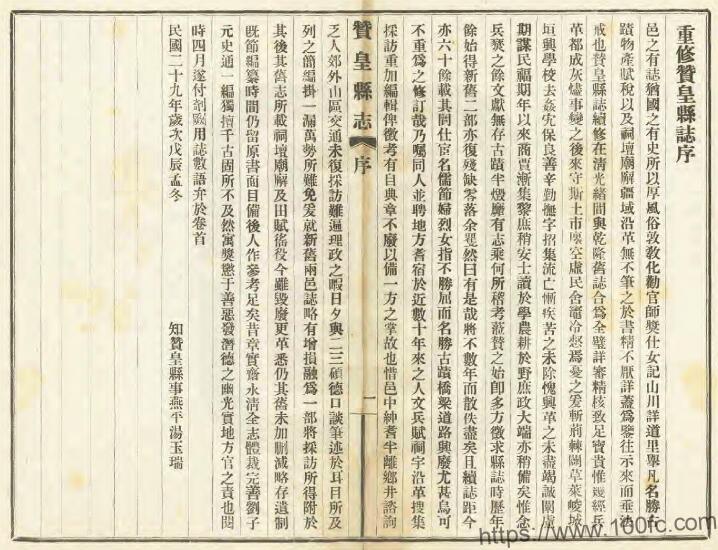 重修贊皇縣誌序
邑之有誌猶國之有史所以厚風俗敦教化勸官師獎仕女記山川詳道里舉凡名勝古
蹟物產賦稅以及祠壇廟廨疆域沿革無不筆之於書精不厭詳蓋爲鑒往示來而垂法
戒也贊皇縣誌續修在清光緒間與乾隆舊誌合爲全璧詳審精核致足寶貴惟幾經兵
革都成灰燼事變之後來守斯土市廛空虛民舍竈冷愁焉憂之爰斬荊棘闢草萊峻城
垣興學校去姦宄保良善辛勤撫字招集流亡慚疾苦之未除愧興革之未盡竭誠闕慮
期謀民福期年以來商賈漸集黎庶稍安士讀於學農耕於野庶政大端亦稍備矣惟念
兵燹之餘文獻無存古蹟半燬廳有志乘何所稽考蒞贊之始即多方徵求縣誌時歷年
餘始得新舊二部亦復殘缺零落余瞿然曰有是哉將不數年而散佚盡矣且續誌距今
亦六十餘載其間仕宦名儒節婦烈女指不勝屈而名勝古蹟橋梁道路興廢尤甚烏可
不重爲之修訂哉乃囑同人並聘地方耆宿於近數十年來之人文兵賦祠宇沿革搜集
採訪重加編輯俾徵考有自典章不廢以備一方之掌故也惜邑中紳耆半離鄉井諮詢
贊皇縣志 序 一
乏人郊外山區交通未復採訪難遍理政之暇日夕與二三碩德口談筆述於耳目所及
列之簡編掛一漏萬勢所難免爰就新舊兩邑誌略有增損融爲一部將採訪所得附於
其後其舊志所載祠壇廟廨及田賦徭役今雖毀廢更革悉仍其舊未加刪減略存遺制
旣節編纂時間仍留原書面目備後人作參考足矣昔章實齋永清全志體裁完善劉子
元史通一編獨擅千古固所不及然寓獎懲于善惡發潛德之幽光實地方官之責也閱
時四月遂付剞劂用誌數語弁於卷首
民國二十九年歲次戊辰孟冬
知贊皇縣事燕平湯玉瑞
https://www.100fc.com